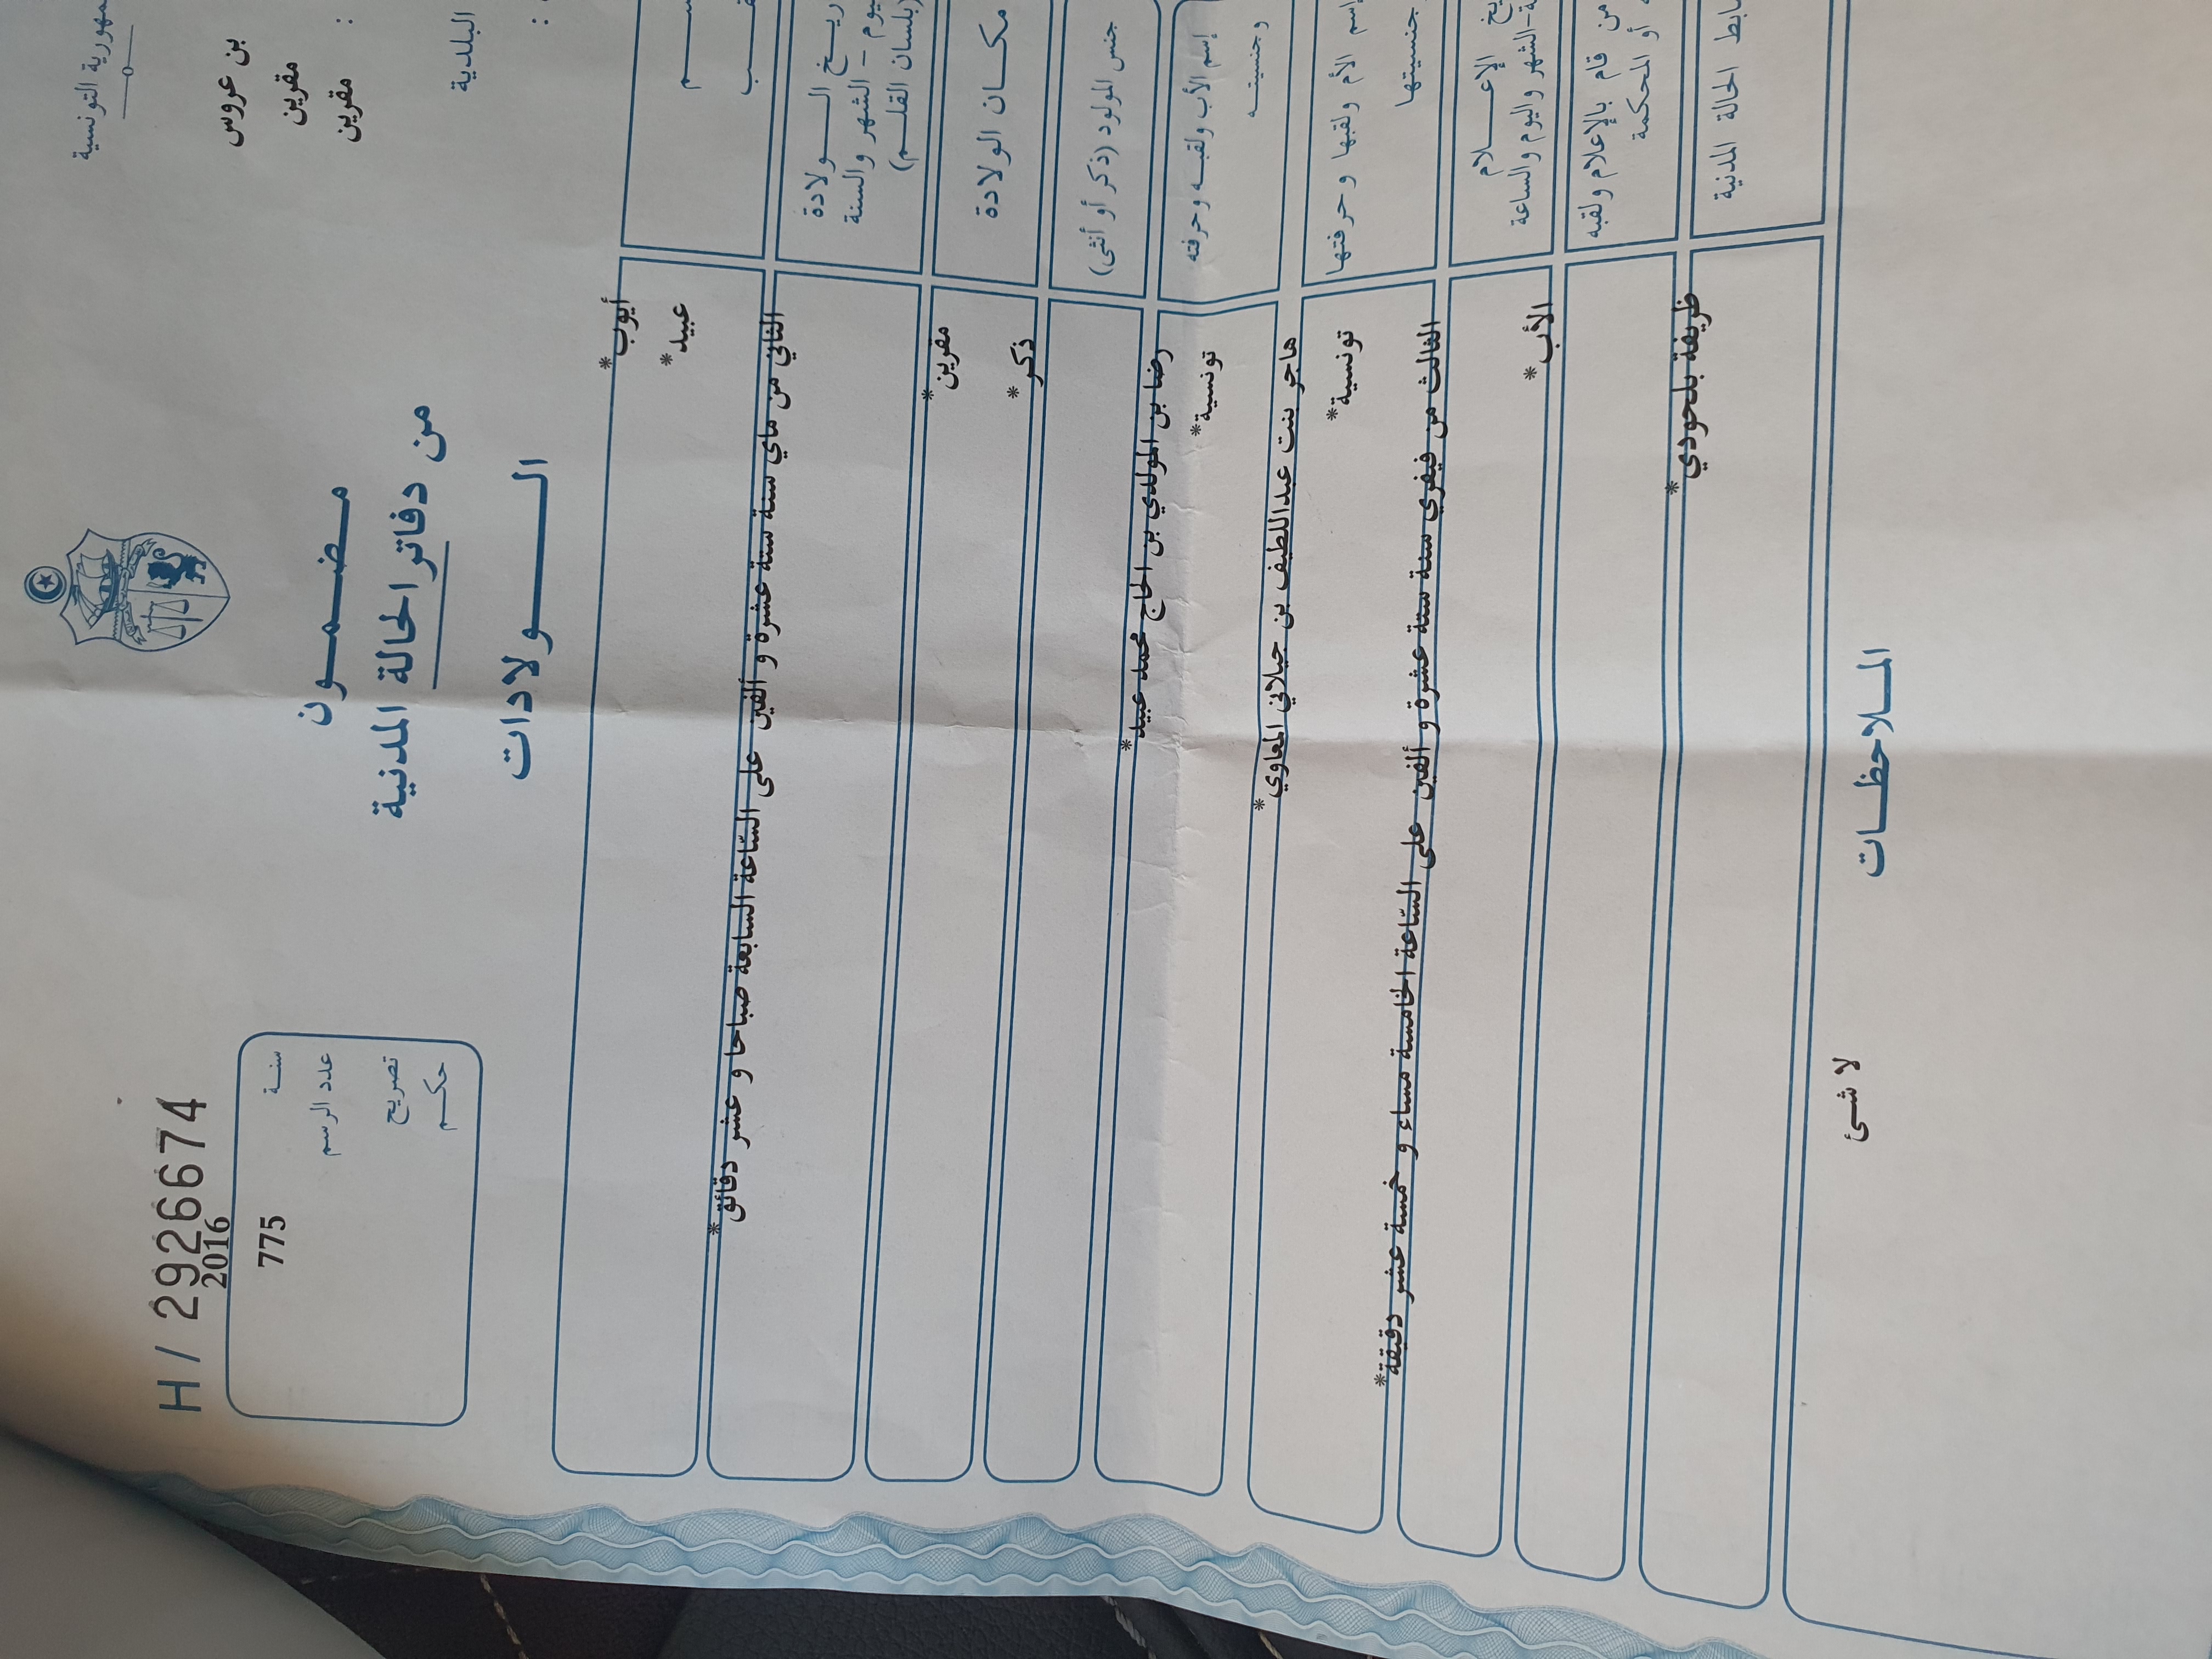 التونسية
بن عروس
مقرين
مقرين
البلدية
H / 2926674
2016
775
سنة
عدد الرسم
تصريح
حكم
مضمون
من دفاتر الحالة المدنية
الولادات
أيوب*
عبيد*
الولادة
اليوم - الشهر والسنة
(بلسان القلم)
الثاني من ماي سنة ستة عشرة و ألفين على السّاعة السابعة صباحا و عشر دقائق*
مكان الولادة
مقرين*
جنس المولود (ذكر أو أنثى)
ذكر*
إسم الأب ولقبه وحرفته
وجنسيته
رضا بن المولدي بن الحاج محمد عبيد*
تونسية*
إسم الأم ولقبها وحرفتها
جنسيتها
هاجر بنت عبداللطيف بن جيلاني المعاوي*
تونسية*
الإعلام
الشهر واليوم والساعة
الثالث من فيفري سنة ستة عشرة و ألفين على السّاعة الخامسة مساء و خمسة عشر دقيقة*
من قام بالإعلام ولقبه
أو المحكمة
الأب*
الحالة المدنية
ظريفة بلحودي*
الملاحظات
لا شئ